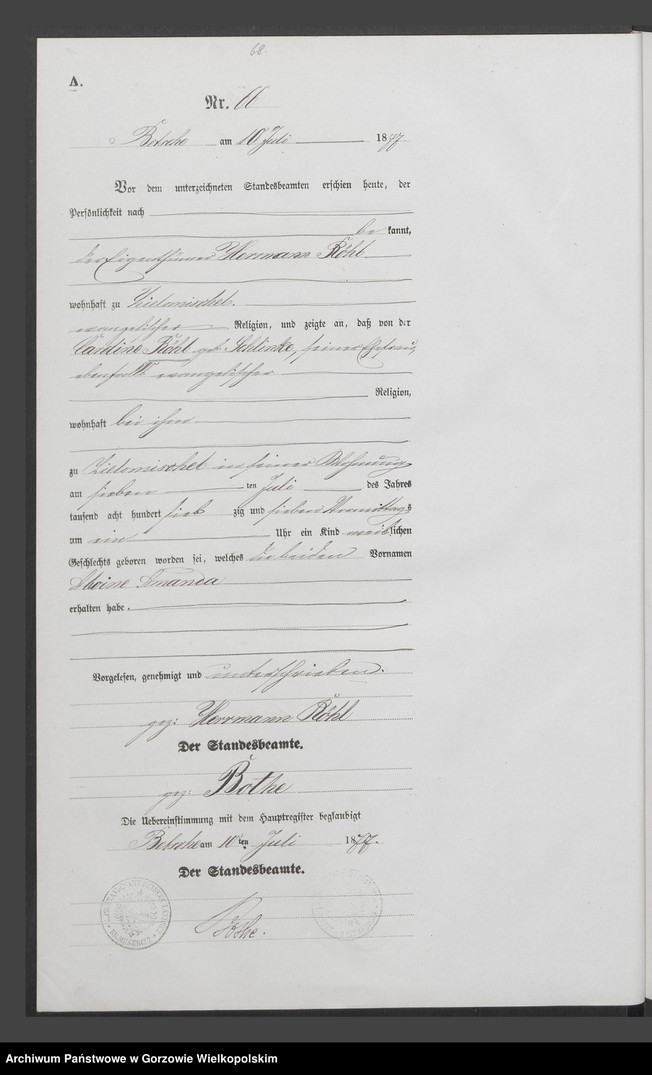 68.
A.
Nr. 66
Betsche am 10 Juli 1877
Vor dem unterzeichneten Standesbeamten erschien heute, der
Persönlichkeit nach
be kannt,
der Eigenthümer Herrmann Röhl
wohnhaft zu
evangelischer Religion, und zeigte an, daß von der
Röhl geb. seiner Ehefrau,
ebenfalls evangelischer
Religion,
wohnhaft bei ihm
zu in seiner Wohnung
am sieben ten Juli des Jahres
tausend acht hundert sieb zig und sieben Vormittags
um ein Uhr ein Kind weiblichen
Geschlechts geboren worden sei, welches die beiden Vornamen
Amanda
erhalten habe.
Vorgelesen, genehmigt und unterschrieben.
gez: Herrmann Röhl
Der Standesbeamte.
gez: Bothe
Die Uebereinstimmung mit dem Hauptregister beglaubigt
Betsche am 10 ten Juli 1877.
Der Standesbeamte.
Bothe.
Archiwum Państwowe w Gorzowie Wielkopolskim